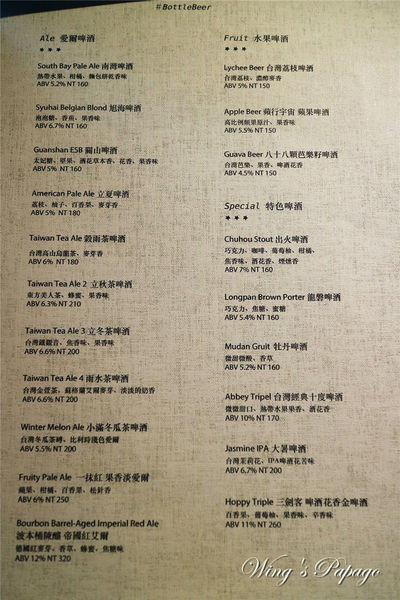 #BottleBeer
Ale 愛爾啤酒
★ ★ ★
South Bay Pale Ale 南灣啤酒
熱帶水果、柑橘、麵包餅乾香味
ABV 5.2% NT 160
Syuhai Belgian Blond 旭海啤酒
泡泡糖、香蕉、果香味
ABV 6.7% NT 160
Guanshan ESB 關山啤酒
太妃糖、堅果、酒花草本香、花香、果香味
ABV 5% NT 160
American Pale Ale 立夏啤酒
荔枝、柚子、百香果、麥芽香
ABV 5% NT 180
Taiwan Tea Ale 穀雨茶啤酒
台灣高山烏龍茶、麥芽香
ABV 6% NT 180
Taiwan Tea Ale 2 立秋茶啤酒
東方美人茶、蜂蜜、果香味
ABV 6.3% NT 210
Taiwan Tea Ale 3 立冬茶啤酒
台灣鐵觀音、焦香味、果香味
ABV 6.6% NT 200
Taiwan Tea Ale 4 雨水茶啤酒
台灣金萱茶、蘇格蘭艾爾麥芽、淡淡的奶香
ABV 6.6% NT 200
Winter Melon Ale 小滿冬瓜茶啤酒
台灣冬瓜茶磚、比利時淺色愛爾
ABV 5.5% NT 200
Fruity Pale Ale 一抹紅 果香淡愛爾
蘋果、柑橘、百香果、松針香
ABV 6% NT 250
Bourbon Barrel-Aged Imperial Red Ale
波本桶陳釀 帝國紅艾爾
德國紅麥芽、香草、蜂蜜、焦糖味
ABV 12% NT 320
Fruit 水果啤酒
★ ★ ★
Lychee Beer 台灣荔枝啤酒
台灣荔枝、濃醇麥香
ABV 5% NT 150
Apple Beer 蘋行宇宙 蘋果啤酒
高比例蘋果原汁、果香味
ABV 5.5% NT 150
Guava Beer 八十八顆芭樂籽啤酒
台灣芭樂、果香、啤酒花香
ABV 4.5% NT 150
Special 特色啤酒
★ ★ ★
Chuhou Stout 出火啤酒
巧克力、咖啡、葡萄柚、柑橘、
焦香味、酒花香、煙燻香
ABV 7% NT 160
Longpan Brown Porter 龍磐啤酒
巧克力、焦糖、蜜糖
ABV 5.4% NT 160
Mudan Gruit 牡丹啤酒
微甜微酸、香草
ABV 5.2% NT 160
Abbey Tripel 台灣經典十度啤酒
微微甜口、熱帶水果果香、酒花香
ABV 10% NT 170
Jasmine IPA 大暑啤酒
台灣茉莉花、IPA啤酒花苦味
ABV 6.7% NT 200
Hoppy Triple 三劍客 啤酒花香金啤酒
百香果、葡萄柚、果香味、辛香味
ABV 11% NT 260
Wing's Papago